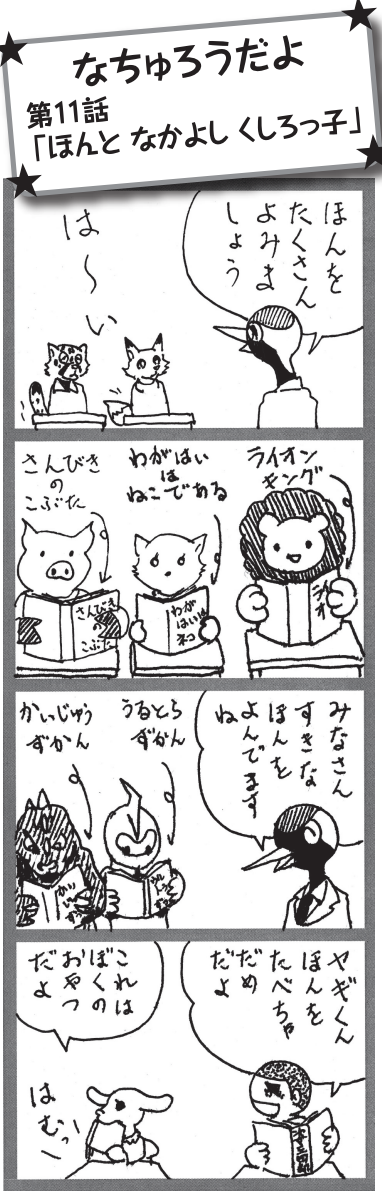 なちゅろうだよ
第11話
「ほんと なかよし くしろっ子」
ほんを
たくさん
よみま
しょう
は〜い
ライオン
キング
わがはい
は
ねこである
さんびき
の
こぶた
わが
はいは
ネコ
さんびき
の
こぶた
みなさん
すきな
ほんを
よんでます
ね
うるとら
ずかん
かいじゅう
ずかん
ヤギくん
ほんを
たべちゃ
だめ
だよ
これは
ぼくの
おやつ
だよ
はむっ